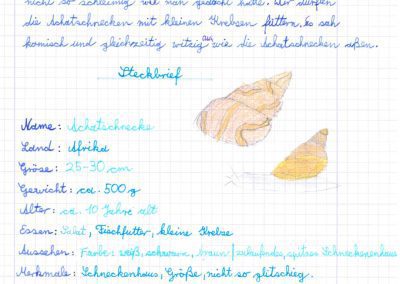 nicht so schleimig wie man gedacht hätte. Wir durften
die Achatschnecken mit kleinen Krebsen füttern. Es sah
komisch und gleichzeitig witzig aus wie die Achatschnecken aßen.
Steckbrief
Name: Achatschnecke
Land: Afrika
Gröse: 25-30 cm
Gewicht: ca. 500 g
Alter: ca. 10 Jahre alt
Essen: Salat, Fischfutter, kleine Krebse
Aussehen: Farbe: weiß, schwarz, braun / zulaufendes, spitzes Schneckenhaus
Merkmale: Schneckenhaus, Größe, nicht so glitschig.